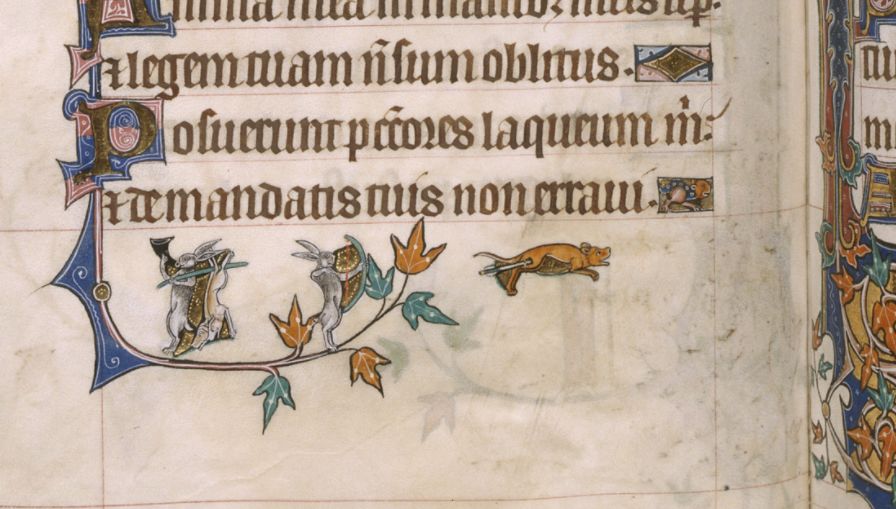 Anima mea in manibȝ meis sēp̄.
⁊ legem tuam n̄ sum oblitus.
Posuerunt pc̄c̄ores laqueum m̄i:
⁊ de mandatis tuis non erraui.